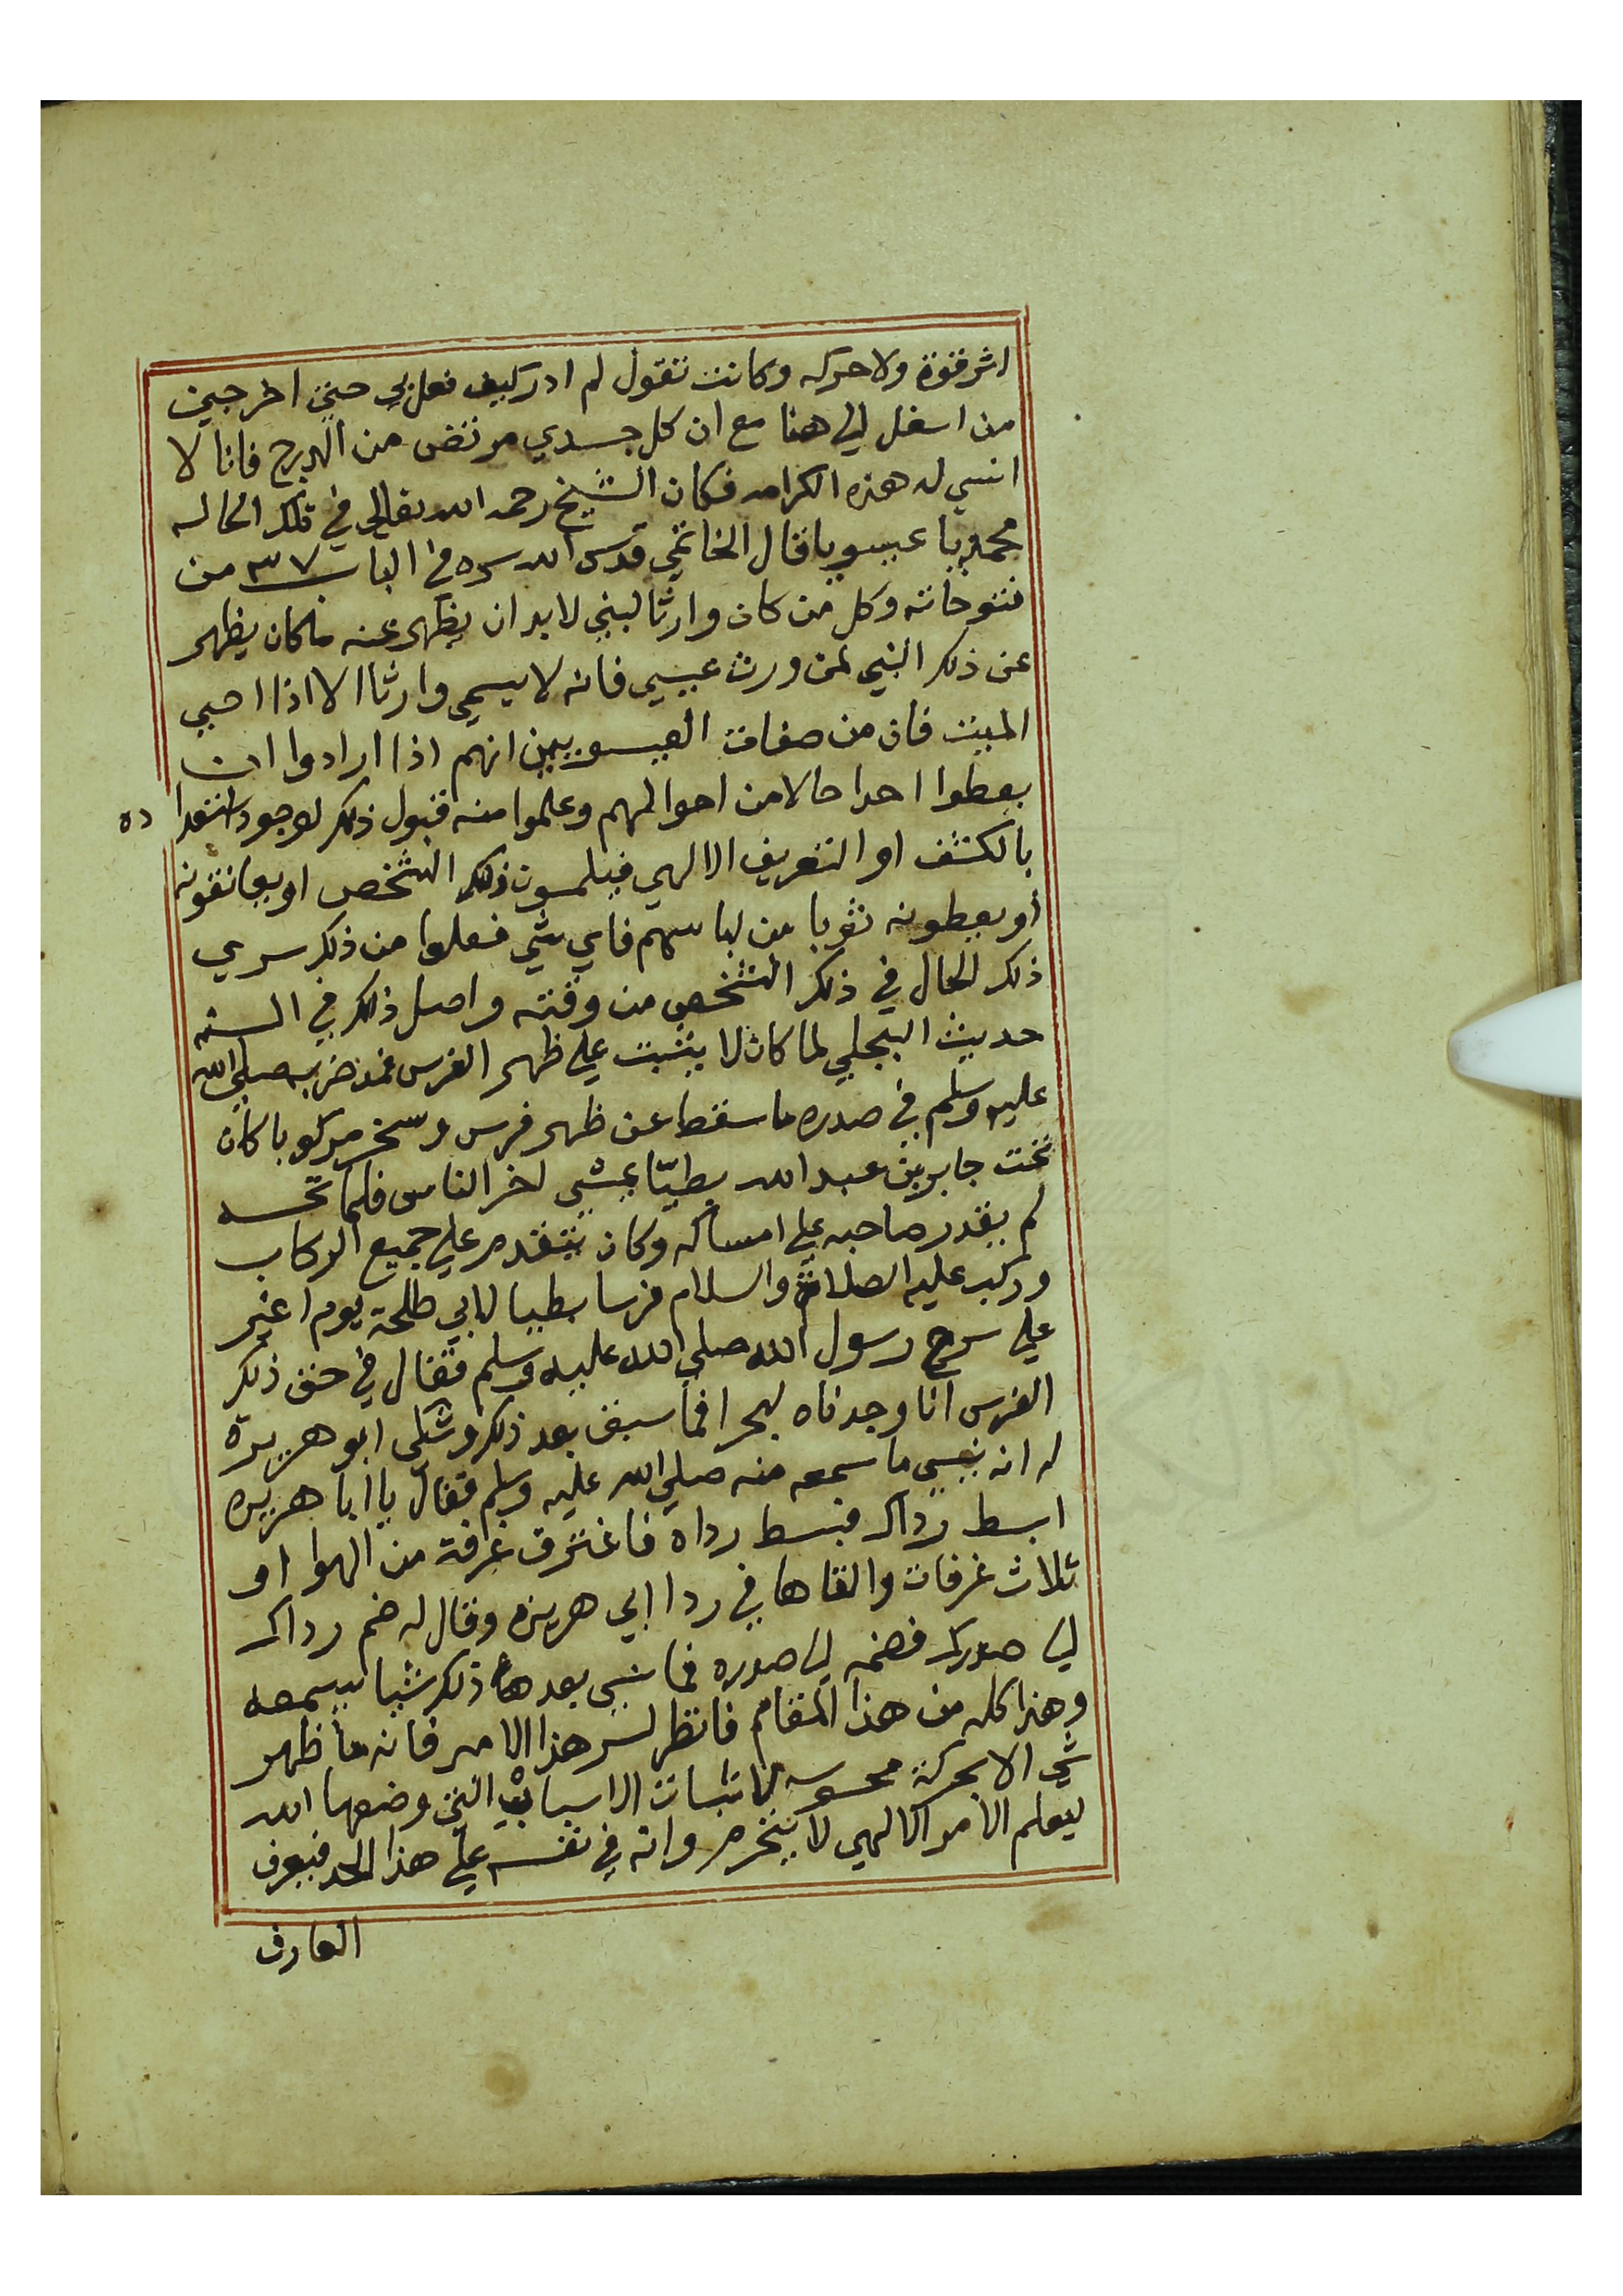 اثر قوة ولا حركه وكانت تقول لم ادر كيف فعل بي حتى اخرجني
من اسفل الى هنا مع ان كل جسدي مرتض من الدرج فانا لا
انسي له هذه الكرامه فكان الشيخ رحمه الله تعالى في تلك الحاله
محمديا عيسويا قال الخاتمي قدس الله سره في الباب ٣٧ من
فتوحاته وكل من كان وارثا لنبي لابد ان يظهر عنه ماكان يظهر
عن ذلك النبي لمن ورث عيسي فانه لا يسمي وارثا الا اذا احيى
الميت فان من صفات العيسويين انهم اذا ارادوا ان
يعطوا احدا حالا من احوالهم وعلموا منه قبول ذلك لوجود استعدا ده
بالكشف او التعريف الالهي فيلمسون ذلك الشخص او يعانقونه
أو يعطونه ثوبا من لباسهم فاي شي فعلوا من ذلك سري
ذلك الحال في ذلك الشخص من وقته واصل ذلك في السنه
حديث البجلي لما كان لا يثبت على ظهر الفرس فمذ ضربه صلى الله
عليه وسلم في صدره ما سقط عن ظهر فرس و مركوبا كان
تحت جابر بن عبد الله بطيّا يمشي اخر الناس فلما
لم يقدر صاحبه على امساكه وكان يتقدم على جميع الركاب
وركب عليه الصلاة والسلام فرسا بطيا لابي طلحة يوم اغير
على سرح رسول الله صلى الله عليه وسلم فقال في حق ذلك
الفرس انا وجدناه لبحرا فما سبق بعد ذلك وشكى ابو هريرة
له انه نسي ما سمعه منه صلى الله عليه وسلم فقال يا ابا هريره
ابسط رداك فبسط رداه فاغترف غرفة من الهوا او
ثلاث غرفات والقاها في ردا ابي هريره وقال له ضم رداك
الى صدرك فضمه الى صدره فما نسي بعد ذلك شيا يسمعه
وهذا كله من هذا المقام فانظر لسر هذا الامر فانه ما ظهر
شي الا بحركة محسوسه لاثبات الاسباب التي وضعها الله
ليعلم الامر الالهي لا ينخرم وانه في نفسه على هذا الحد فيعرف
العارف